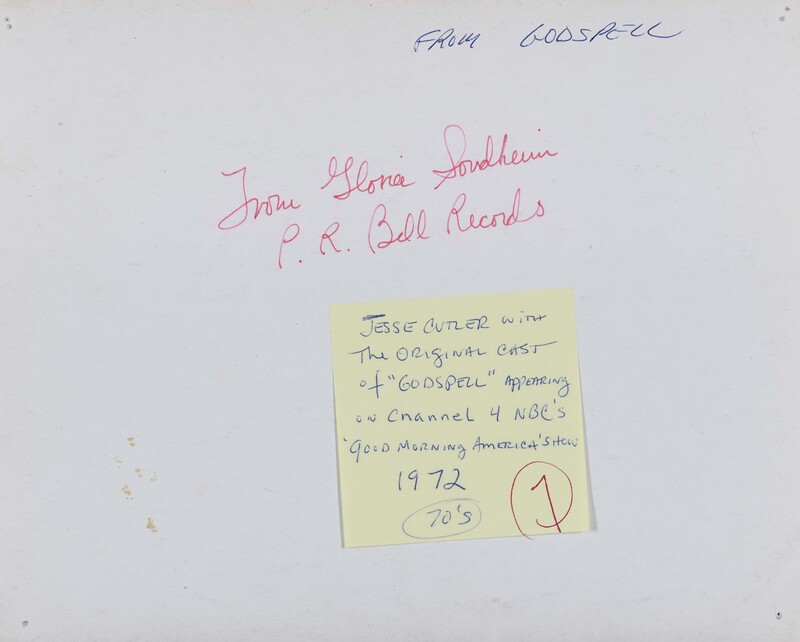 FROM GODSPELL
From Gloria Sondheim
P. R. Bell Records
JESSE CUTLER WITH
The ORIGINAL CAST
of "GODSPELL" APPEARING
ON Channel 4 NBC'S
'GOOD MORNING AMERICA'SHOW
1972
70's
1